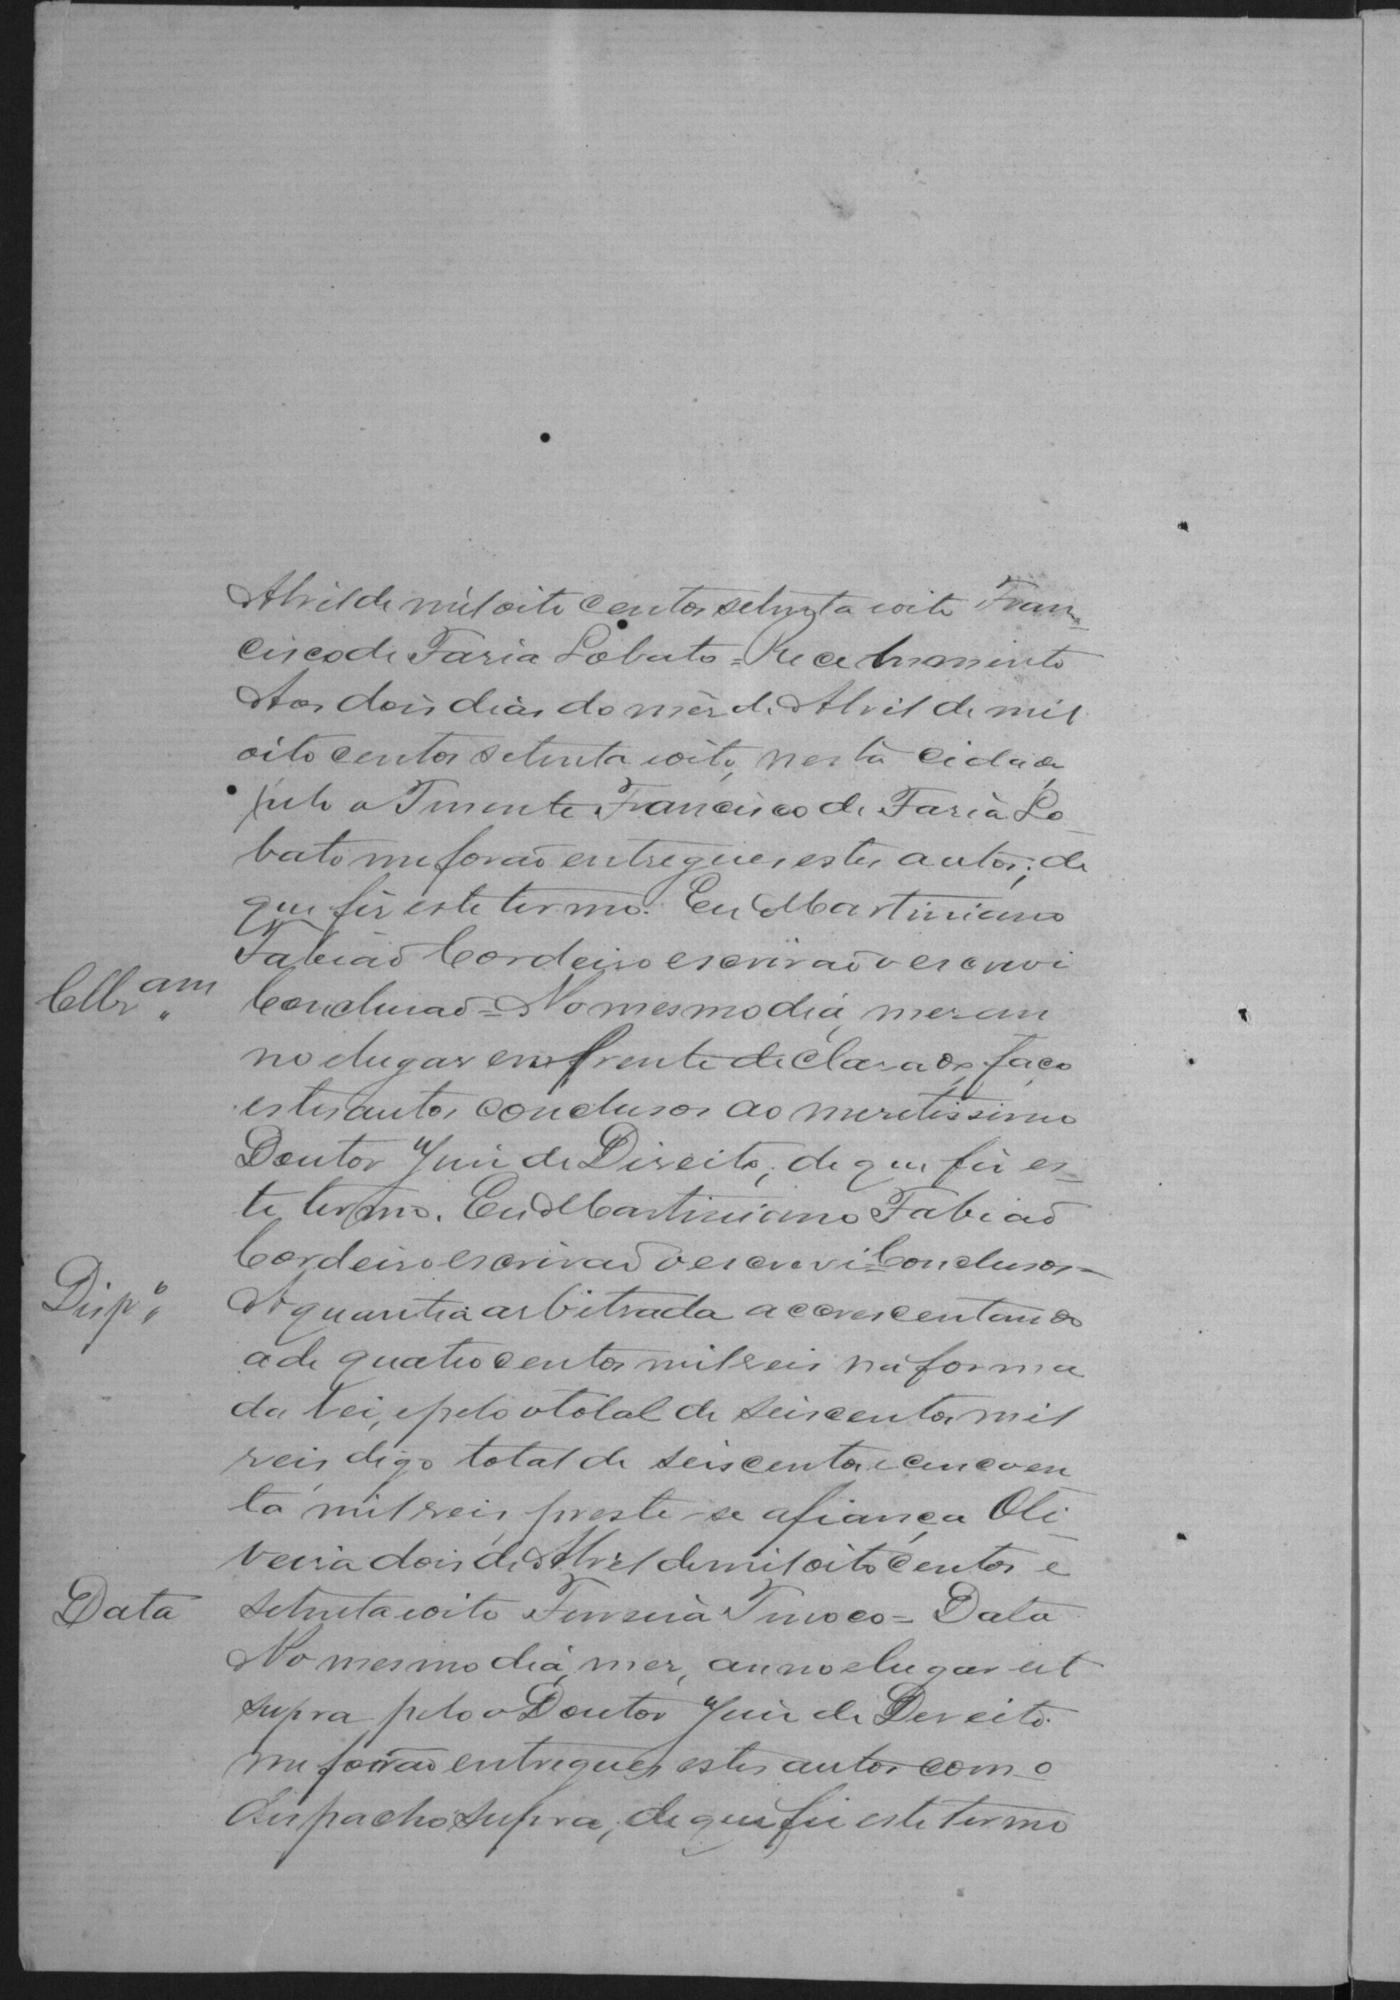 Abril de mil oito centos setenta eoito Fran-
cisco de Faria Lobato = Recebimento
Aos dois dias do mês de Abril de mil
oito centos setenta eoito, nesta cidade
pelo o Tenente Francisco de Faria Lo-
bato me forão entregues estes autos; de
que fis este termo. Eu Martiniano
Fabião Cordeiro escrivão o escrevi
Cllsam Conclusão = No mesmo dia, mes an
no elugar em frente declarado, faço
estes autos conclusos ao meretissimo
Doutor Juis de Direito, de que fis es-
te termo. Eu Martiniano Fabião
Cordeiro escrivão o escrevi = Conclusos =
Dispo A quantia arbitrada accrescentando
a de quatro centos mil reis na forma
da Lei, e pelo o total de seis centos mil
reis digo total de seis centos e cincoen
ta mil reis preste-se a fiança Oli-
veira dois de Abril de mil oito centos e
Data setenta eoito Ferreira Tinoco = Data
No mesmo dia, mes, anno elugar ut
supra pelo o Doutor Juis de Dereito
me forão entregues estes autos com o
despacho supra, de que fis este termo